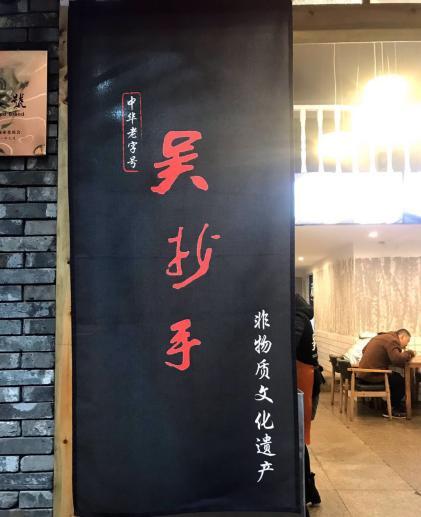 中华老字号
吴抄手
非物质文化遗产